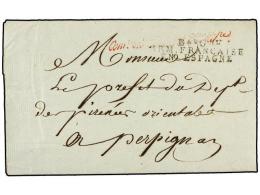 Bau Gal
ARM. FRANCAISE
No ESPAGNE
Monsieur
Le prefet du Dept
de pirénées orientales
a perpignan